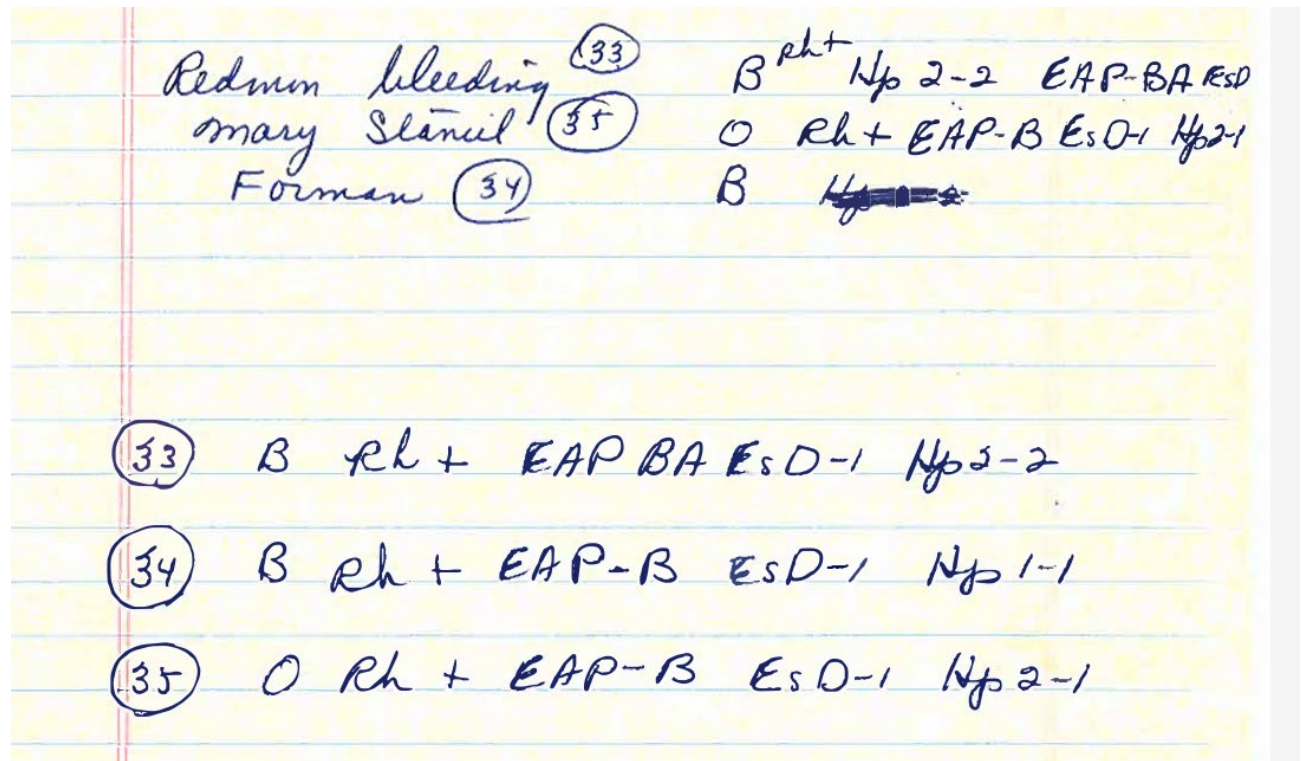 Redmon bleeding 33 B Rh+ Hp 2-2 EAP-BA EsD
Mary Stancil 35 O Rh + EAP-B EsD-1 Hp 2-1
Forman 34 B
33 B Rh + EAP BA EsD-1 Hp 2-2
34 B Rh + EAP-B EsD-1 Hp 1-1
35 O Rh + EAP-B EsD-1 Hp 2-1